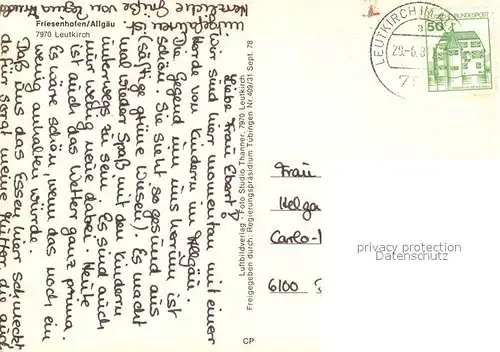 Friesenhofen/Allgäu
7970 Leutkirch
Liebe Frau Ebert!
wir sind hier momentan mit einer
Horde von Kindern im Allgäu.
Die Gegend um uns herum ist
schön. Sie sieht so gesund aus
(saftige grüne Wiesen). Es macht
mal wieder Spaß mit den Kindern
unterwegs zu sein. Es sind auch
nur wenig neue dabei. Heute
ist auch das Wetter ganz prima.
Es wäre schön, wenn das noch ein
wenig anhalten würde.
Daß uns das Essen hier schmeckt
dafür sorgt meine Mutter, die auch
mitgefahren ist.
Herzliche Grüße von
Luftbildverlag - Foto Studio Thanner, 7970 Leutkirch
Freigegeben durch: Regierungspräsidium Tübingen Nr. 409/31 Sept. 78
CP
LEUTKIRCH IM
DEUTSCHE BUNDESPOST
50
Frau
Helga
Carlo-
6100
privacy protection
Datenschutz